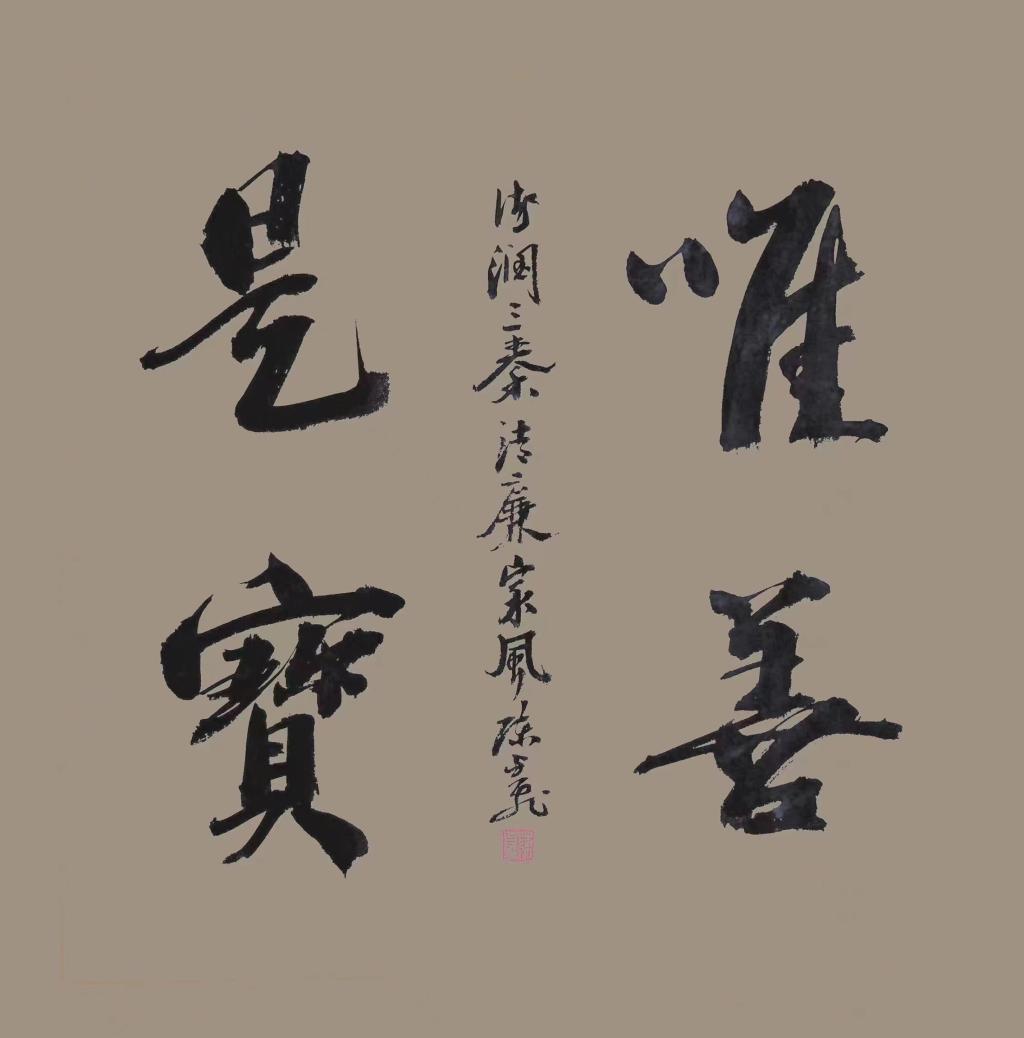 唯善
是寶
清潤三秦清廉家風陳